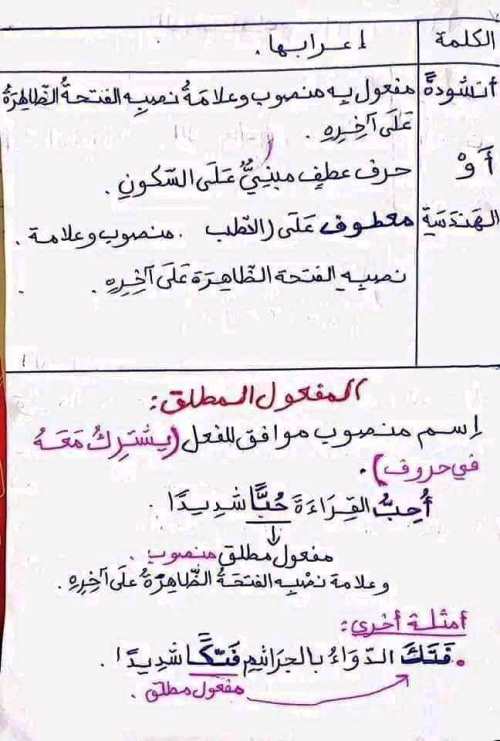 الكلمة إعرابها.
أنشودةً مفعول به منصوب وعلامةُ نصبِه الفتحةُ الظّاهِرَةُ
عَلَى آخِرِهِ.
أَوْ حرف عطفٍ مبنِيٌّ عَلَى السّكونِ.
الهَندَسَةِ معطوف عَلَى (الطب. منصوب وعلامة.
نصبِهِ الفتحة الظّاهِرَة عَلَى آخِرِهِ.
المفعول المطلق:
إسم منصوب موافق للفعل (يشترِكُ مَعَهُ
في حروف).
أُحِبُّ القِرَاءَةَ حُبًّا شَدِيدًا.
مفعول مطلق منصوب.
وعلامة نصْبِه الفَتحَةُ الظّاهِرَةُ عَلَى آخِرِهِ.
أمثلة أخرى:
• فَتَكَ الدّوَاءُ بالجراثيم فَتْكًا شَدِيدًا.
مفعول مطلق.